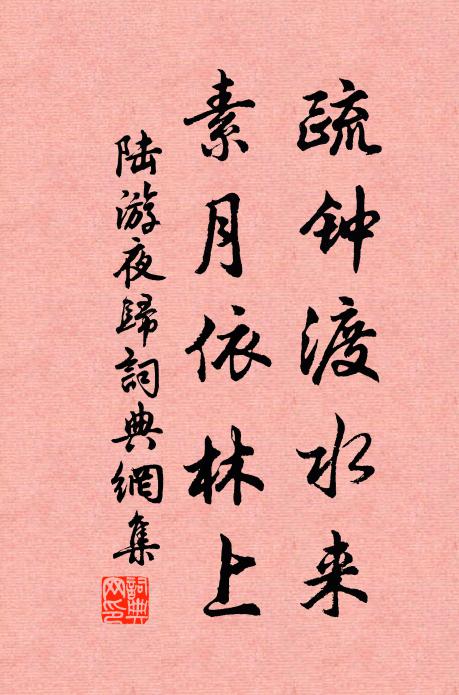 疏钟渡水来
素月依林上
陆游夜歸詞典網集
詞典网印